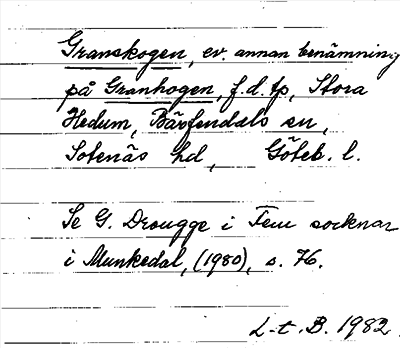 Granskogen, ev. annan benämning
på Granhogen, f.d. tp, Stora
Hedum, Bärfendals sn,
Sotenäs hd, Göteb. l.
Se G. Drougge i Fem socknar
i Munkedal, (1980), s. 76.
L-t. B. 1982.